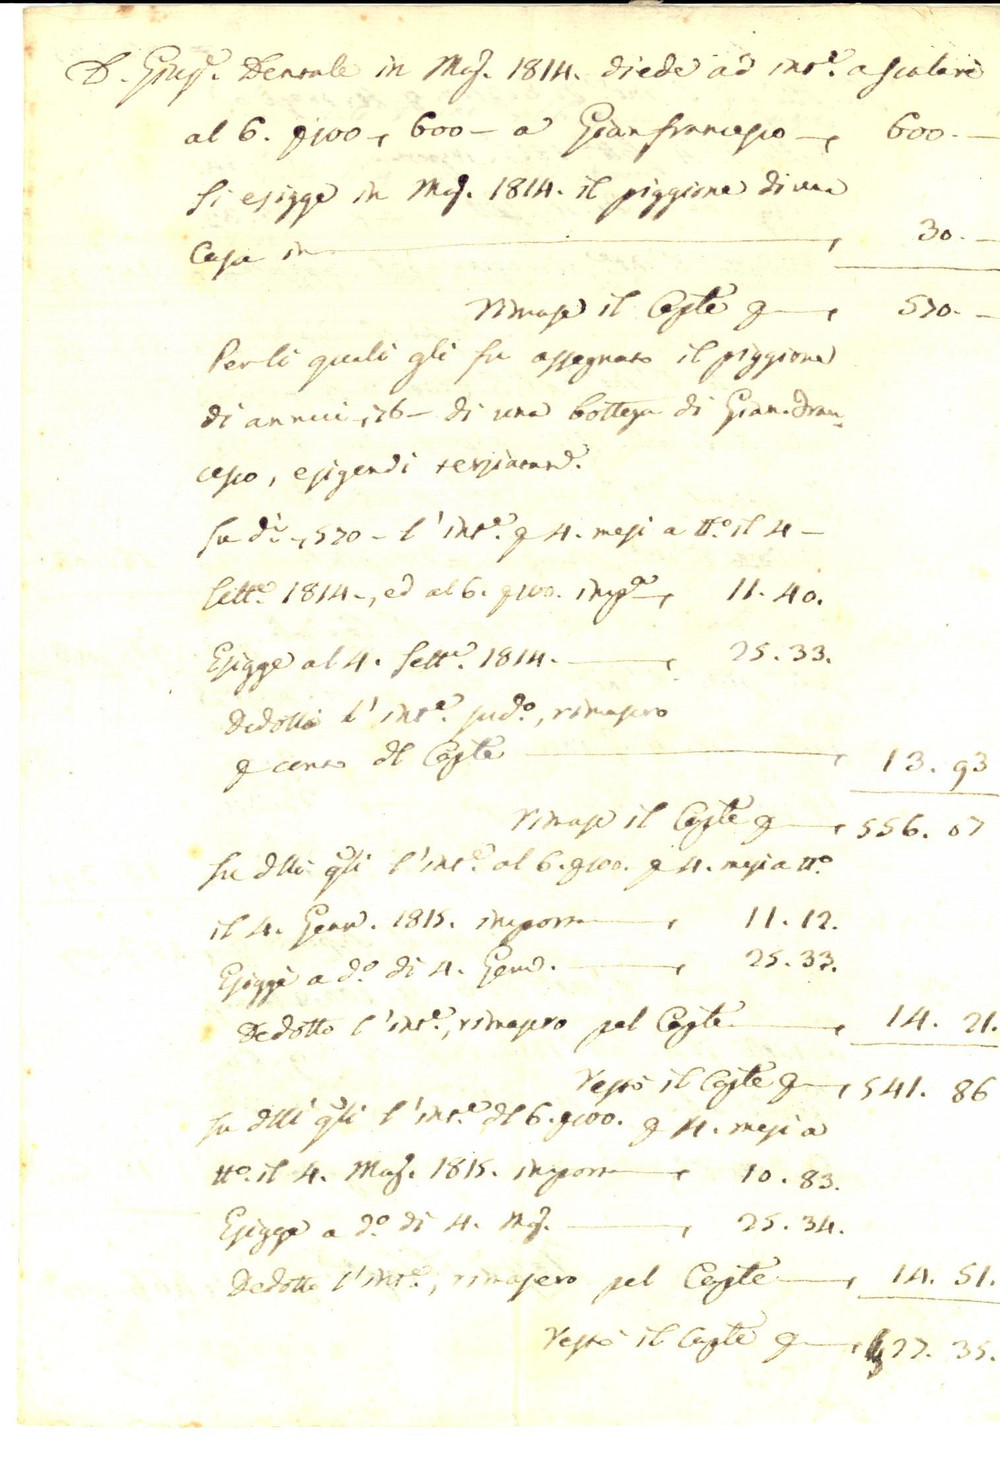 D. Gius.e Dentale in Mag. 1814. diede ad int.e a scalare
al 6. p 100, 600 – a Gianfrancesco –, 600. –
Si esigge in Mag. 1814. il piggione di una
Casa in –, 30. –
Rimase il Cap.le p –, 570. –
Per li quali gli fu assegnato il piggione
di annui, 76 – di una bottega di Gian. Fran-
cesco, esigendi terziatam.e
Su d.i, 570 – l'int.e p 4. mesi a tt.o il 4 –
Sett.e 1814 –, ed al 6. p 100. imp.a –, 11. 40.
Esigge al 4. Sett.e 1814. –, 25. 33.
Dedotto l'int.e sud.o, rimasero
p conto del Cap.le –, 13. 93
rimase il Cap.le p –, 556. 07
Su d.tti q.li l'int.e al 6. p 100. p 4. mesi a tt.o
il 4. Genn. 1815. importa –, 11. 12.
Esigge a d.o di 4. Gen. –, 25. 33.
Dedotto l'int.e, rimasero pel Cap.le –, 14. 21.
Restò il Cap.le p –, 541. 86
Su d.tti q.li l'int.e del 6. p 100. p 4. mesi a
tt.o il 4. Mag. 1815. importa –, 10. 83.
Esigge a d.o di 4. Mag. –, 25. 34.
Dedotto l'int.e, rimasero pel Cap.le –, 14. 51.
Restò il Cap.le p –, 527. 35.